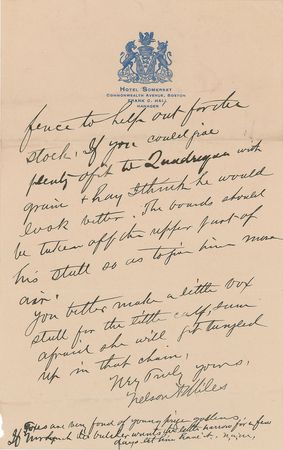 HOTEL SOMERSET
COMMONWEALTH AVENUE, BOSTON
FRANK C. HALL
MANAGER
fence to help out for the
stock, If you could give
plenty of it to Quadregan with
grain & hay I think he would
look better. The boards should
be taken off the upper part of
his stall so as to give him more
air.
You better make a little box
stall for the little calf, I am
afraid she will get tangled
up in that chain,
Very Truly Yours,
Nelson A Miles
are very fond of young
If butcher wants the
days let him have it. N.A.M.